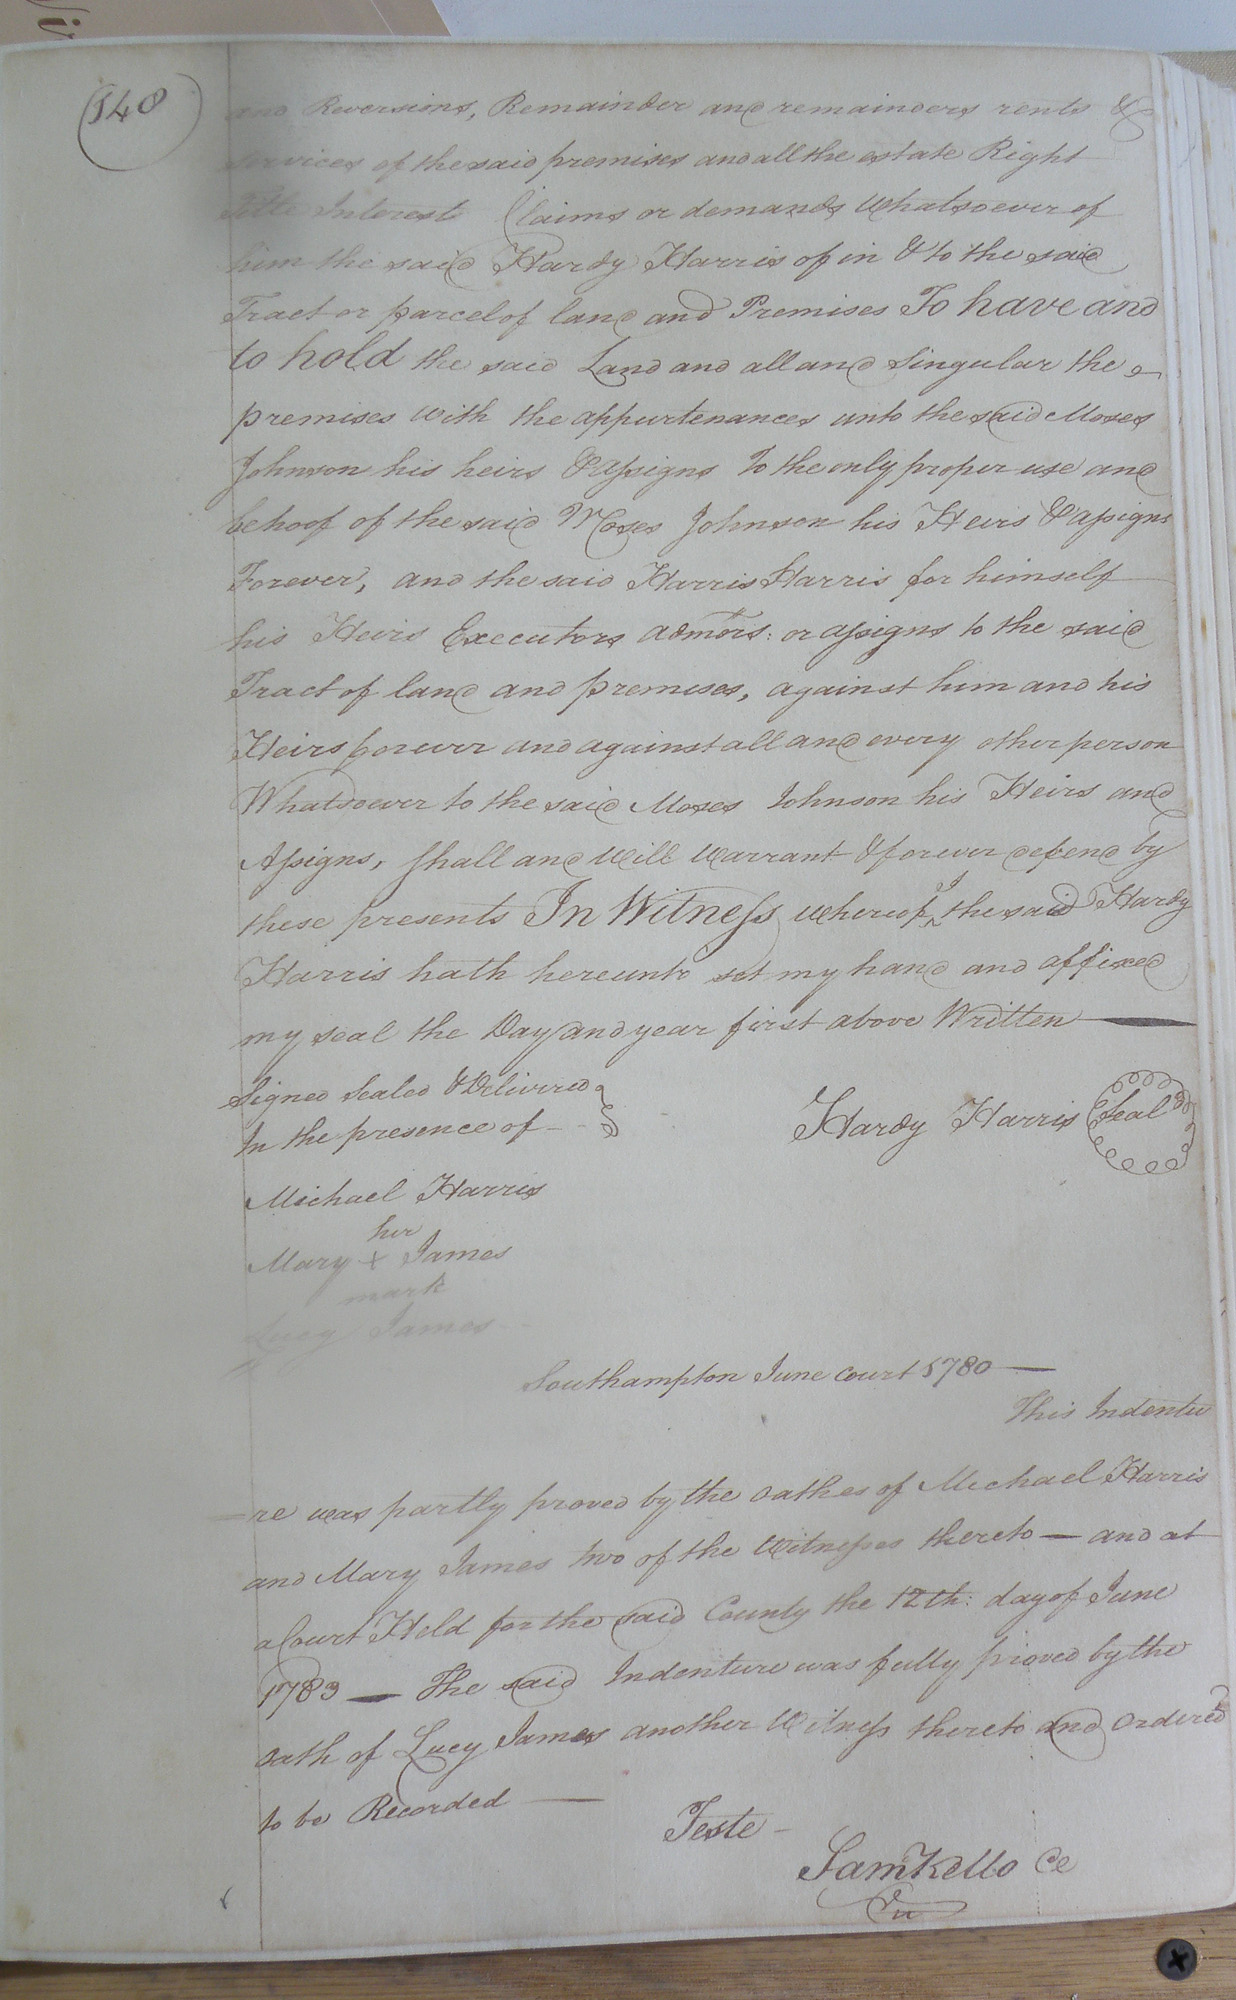 148
and Reversions, Remainder and remainders rents &
Services of the said premises and all the estate Right
Title Interest Claims or demands Whatsoever of
him the said Hardy Harris of in & to the said
Tract or parcel of land and Premises To have and
to hold the said Land and all and Singular the
premises with the appurtenances unto the said Moses
Johnson his heirs & assigns To the only proper use and
behoof of the said Moses Johnson his Heirs & assigns
Forever, and the said Harris Harris for himself
his Heirs Executors admors: or assigns to the said
Tract of land and premises, against him and his
Heirs forever and against all and every other person
Whatsoever to the said Moses Johnson his Heirs and
Assigns, shall and Will Warrant & forever defend by
these presents In Witness whereof I the said Hardy
Harris hath hereunto set my hand and affixed
my seal the Day and year first above Written
Signed Sealed & Delivered
In the presence of
Hardy Harris Seal
Michael Harris
her
Mary + James
mark
Lucy James
Southampton June Court 1780
This Indentu
=re was partly proved by the oathes of Michael Harris
and Mary James two of the Witnesses thereto — and at
a Court Held for the said County the 12th: day of June
1783 — The said Indenture was fully proved by the
oath of Lucy James another Witness thereto and Ordered
to be Recorded
Teste
Sam Kello Ce